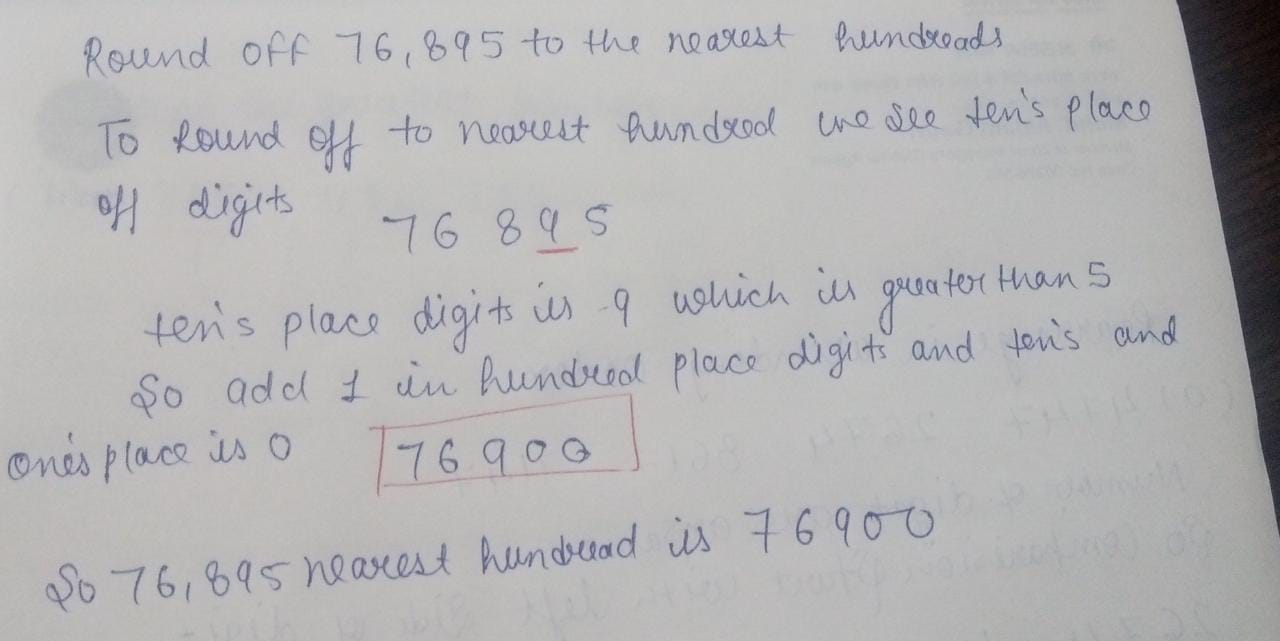 Round off 76,895 to the nearest hundreads
To Round off to nearest hundred we see ten's place
off digits
76 895
ten's place digits is 9 which is greater than 5
So add 1 in hundred place digits and ten's and
one's place is 0
76900
So 76,895 nearest hundread is 76900